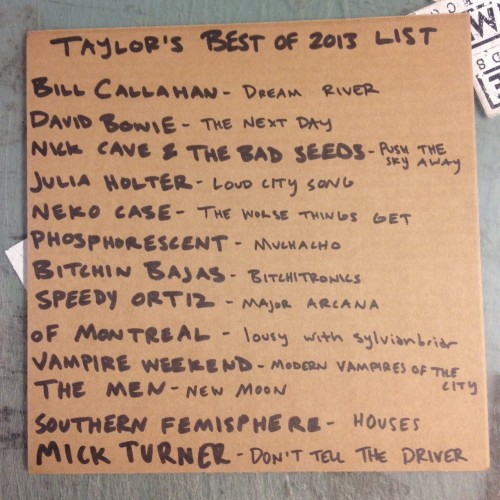 TAYLOR'S BEST OF 2013 LIST
BILL CALLAHAN - DREAM RIVER
DAVID BOWIE - THE NEXT DAY
NICK CAVE & THE BAD SEEDS - PUSH THE
SKY AWAY
JULIA HOLTER - LOUD CITY SONG
NEKO CASE - THE WORSE THINGS GET
PHOSPHORESCENT - MUCHACHO
BITCHIN BAJAS - BITCHITRONICS
SPEEDY ORTIZ - MAJOR ARCANA
OF MONTREAL - lousy with sylvianbriar
VAMPIRE WEEKEND - MODERN VAMPIRES OF THE
CITY
THE MEN - NEW MOON
SOUTHERN FEMISPHERE - HOUSES
MICK TURNER - DON'T TELL THE DRIVER